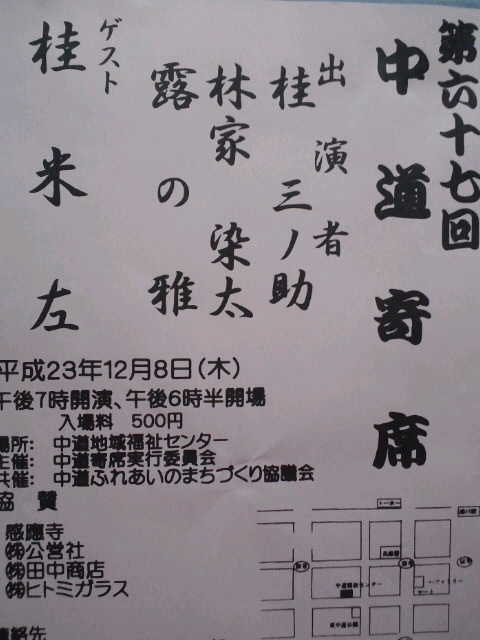 第六十七回
中道寄席
出演者
桂三ノ助
林家染太
露の雅
ゲスト
桂米左
平成23年12月8日(木)
午後7時開演、午後6時半開場
入場料 500円
場所: 中道地域福祉センター
主催: 中道寄席実行委員会
共催: 中道ふれあいのまちづくり協議会
協賛
感應寺
㈱公営社
㈱田中商店
㈱ヒトミガラス
連絡先
中道福祉センター